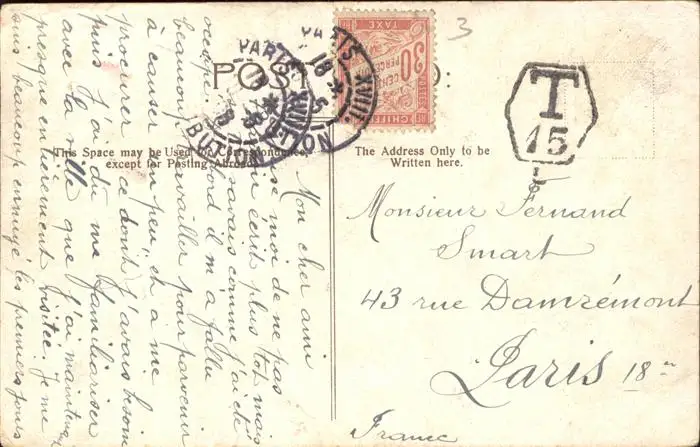 POST
This Space may be Used for Correspondence,
except for Posting Abroad.
The Address Only to be
Written here.
30
CENTIMES
A PERCEVOIR
TAXE
CHIFFRE
PARIS XVIII
18
5
PARIS
DISTRIBUTION
3
T
15
Mon cher ami
moi de ne pas
écrit plus tôt mais
savais comme j'ai été
occupé. D'abord il m'a fallu
beaucoup travailler pour parvenir
à causer un peu, et à me
procurer ce dont j'avais besoin
puis j'ai dû me familiariser
avec la ville que j'ai maintenant
presque entièrement visitée. Je me
suis beaucoup ennuyé les premiers jours
Monsieur Fernand
Smart
43 rue Damrémont
Paris 18e
France